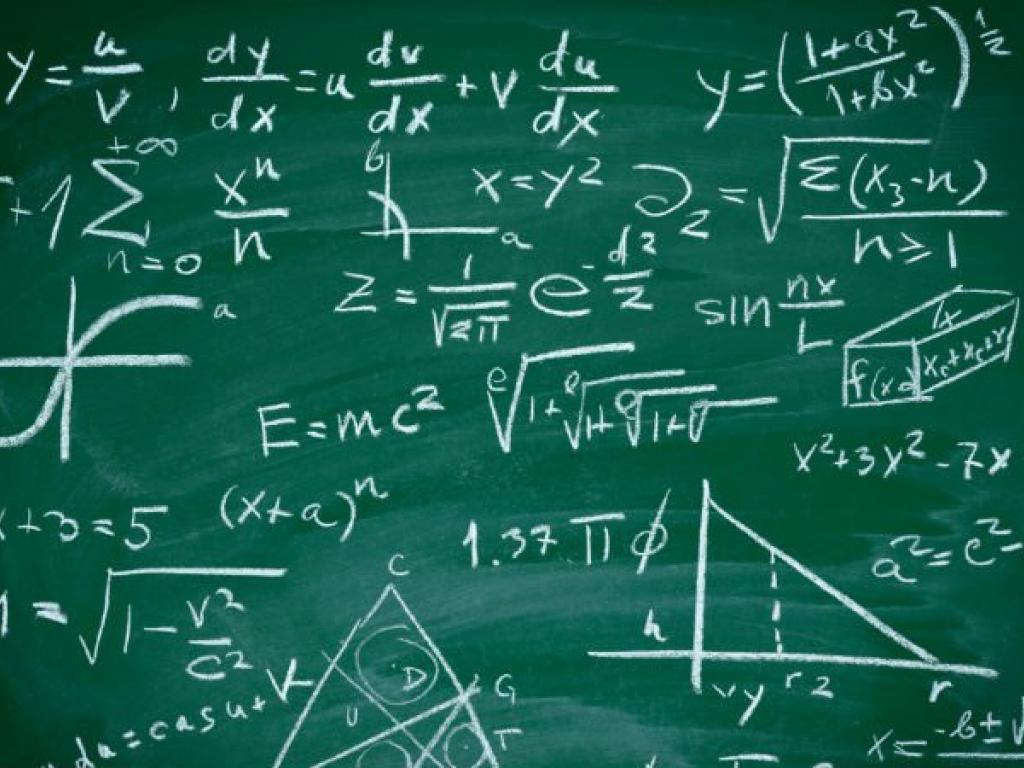 y = u/v , dy/dx = u dv/dx + v du/dx
y = ((1+ax²)/(1+bx²))^½
+1 Σ_{n=0}^{+∞} xⁿ/n
b
a
x = y²
∂₂ = √(Σ(x₃-n)/n≥1)
a
z = 1/√2π e^{-d²/2}
sin nx/L
1x
f(x
E = mc²
x²+3y²-7x
+3=5
(x+a)ⁿ
1.37 π ϕ
a²=c²-
1 = √(1-v²/c²)
C
D
G
U
T
h
v y r 2 r
du = casu +
x = -b±√